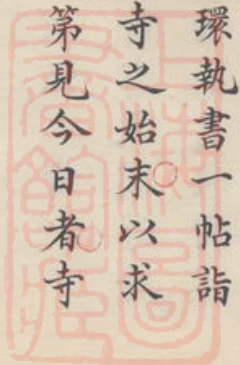 環執書一帖詣
寺之始末以求
第見今日者寺